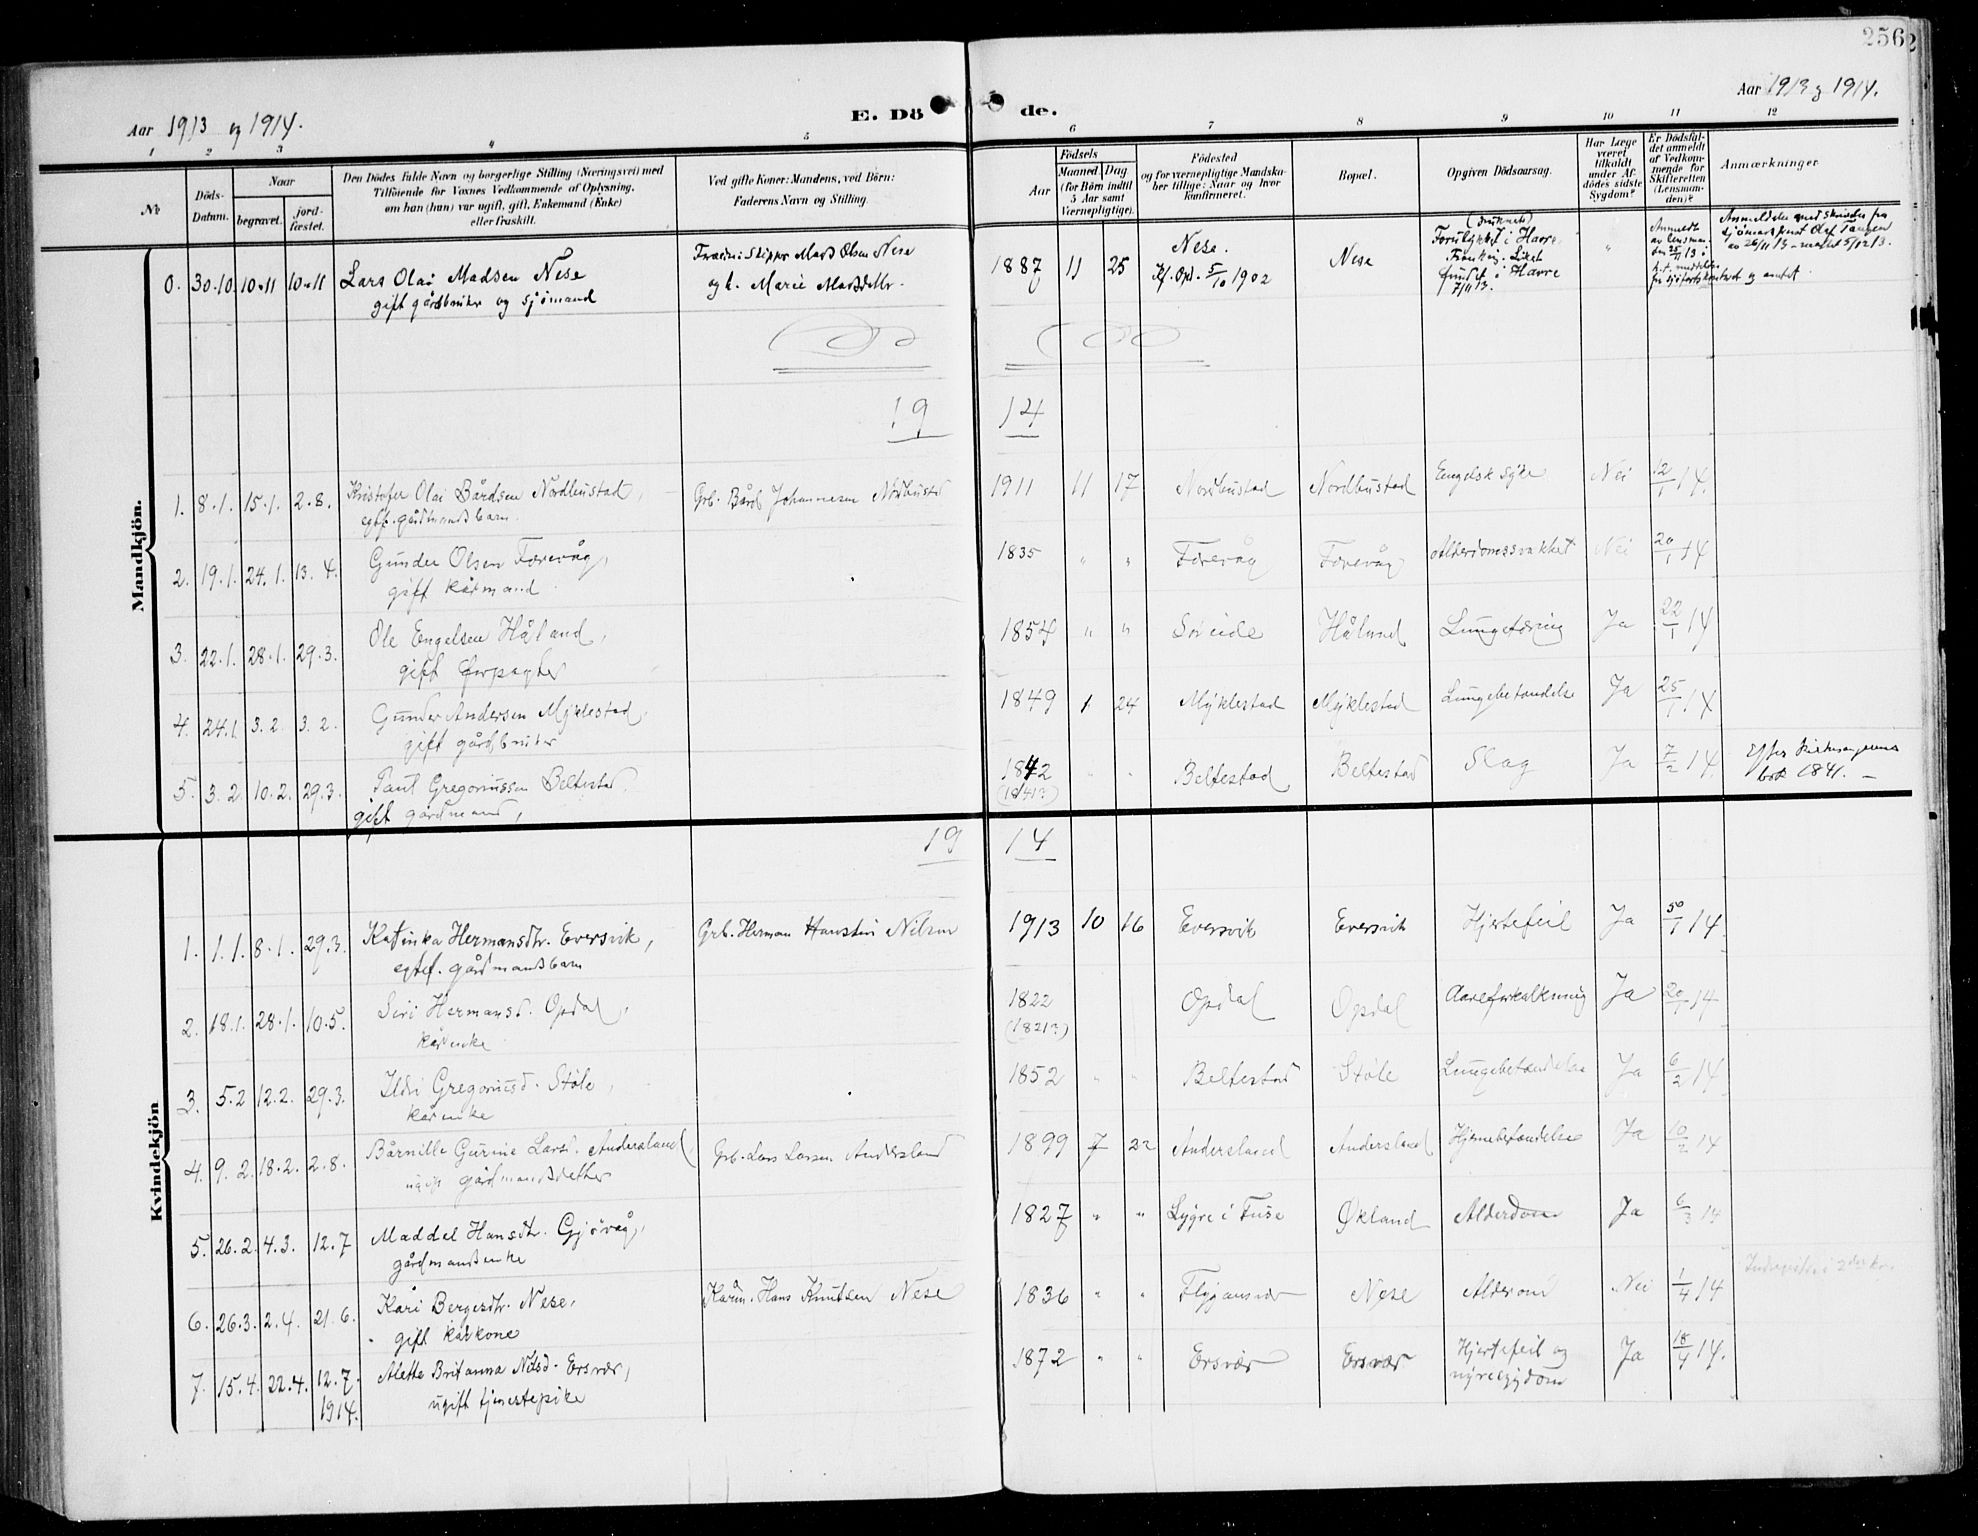 256
2
Aar 1913 og 1914.
E. Dö
de.
Aar 1913 og 1914.
1 2 3 4 5 6 7 8 9 10 11 12
No
Döds-
Datum.
Naar
begravet.
jord-
fæstet.
Den Dödes fulde Navn og borgerlige Stilling (Næringsvei) med
Tilföiende för Voxnes Vedkommende af Oplysning,
om han (hun) var ugift, gift, Enkemand (Enke)
eller fraskilt.
Ved gifte Koner: Mandens, ved Börn:
Faderens Navn og Stilling.
Födsels
Aar
Maaned
Dag
(for Börn indtil
5 Aar samt
Værnepligtige).
Födested
og for værnepligtige Mandska-
ber tillige: Naar og hvor
konfirmeret.
Bopæl.
Opgiven Dödsaarsag.
Har Læge
været
tilkaldt
under Af-
dödes sidste
Sygdom?
Er Dödsfal-
det anmeldt
af Vedkom-
mende for
Skifteretten
(Lensman-
den)?
Anmærkninger
Mandkjön.
0. 30.10. 10.11 10.11 Lars Olai Madsen Nese Skipper Mads Olsen Nese 1887 11 25 Nese. Nese (druknet)
gift gårdbruker og sjömand og h. Marie Marsdettr. Kf. Opd. 5/10 1902 Forulykket i Havre,
Frankrig. Liket
fundet i Havre
7/11 13.
Anmeldt
av lensman-
den 25/11 13
Anmeldelse med skrivelse fra
sjömands Olaf Tangen
av 26/11 13
19 14
1. 8.1. 15.1. 2.8. Kristofer Olai Bårdsen Nordbustad, Grb. Bård Johannesen Nordbustd 1911 11 17 Nordbustad Nordbustad Engelsk Syke Nei 12/1 14.
egtf. gårdmandsbarn.
2. 19.1. 24.1. 13.4. Gunder Olsen Færevåg, 1835 " " Færevåg Færevåg Alderdomssvakhet Nei 20/1 14
gift kårmand
3. 22.1. 28.1. 29.3. Ole Engelsen Håland, 1854 " " Söreide Håland Lungetæring Ja 22/1 14
gift forpagter
4. 24.1 3.2. 3.2. Gunder Andersen Mÿklestad, 1849 1 24 Mÿklestad Mÿklestad Lungebetændelse Ja 25/1 14
gift gårdbruker
5. 3.2 10.2. 29.3. Paul Gregoriussen Beltestad, 1842 " " Beltestad Beltestad Slag Ja 7/2 14. Efter
gift gårdmand, (1841?) bok 1841. —
Kvindekjön
19 14
1. 1.1. 8.1. 29.3. Katinka Hermansdtr. Eversvik, Grb. Herman Hanstein Nilsen 1913 10 16 Eversvik Eversvik Hjertefeil Ja 14
egtef. gårdmandsbarn
2. 18.1. 28.1. 10.5. Siri Hermansd. Opdal, 1822 Opdal Opdal Aareforkalkning Ja 20/1 14
kårenke (1821?)
3. 5.2 12.2. 29.3. Ildri Gregoriusd. Stöle, 1852 " " Beltestad Stöle Lungebetændelse Ja 6/2 14
kårenke
4. 9.2. 18.2. 2.8. Bårnille Gurine Larsd. Andersland, Grb. Lars Larsen Andersland 1899 7 22 Andersland Andersland Hjernebetændelse Ja 10/2 14
ugift gårdmandsdatter
5. 26.2. 4.3. 12.7 Maddel Hansdtr. Gjövåg, 1827 " " Lygre i Fuse Økland Alderdom Ja 6/3 14
gårdmandsenke
6. 26.3. 2.4. 21.6. Kari Bergesdtr. Nese, Kårm. Hans Knutsen Nese 1836 " " Flygansvær Nese Alderdom Nei 1/4 14
gift kårkone
7. 15.4. 22.4. 12.7. Alette Britanna Nilsd. Ersvær, 1872 " " Ersvær Ersvær Hjertefeil og Ja 18/4 14.
1914. ugift tjenestepike nyresygdom